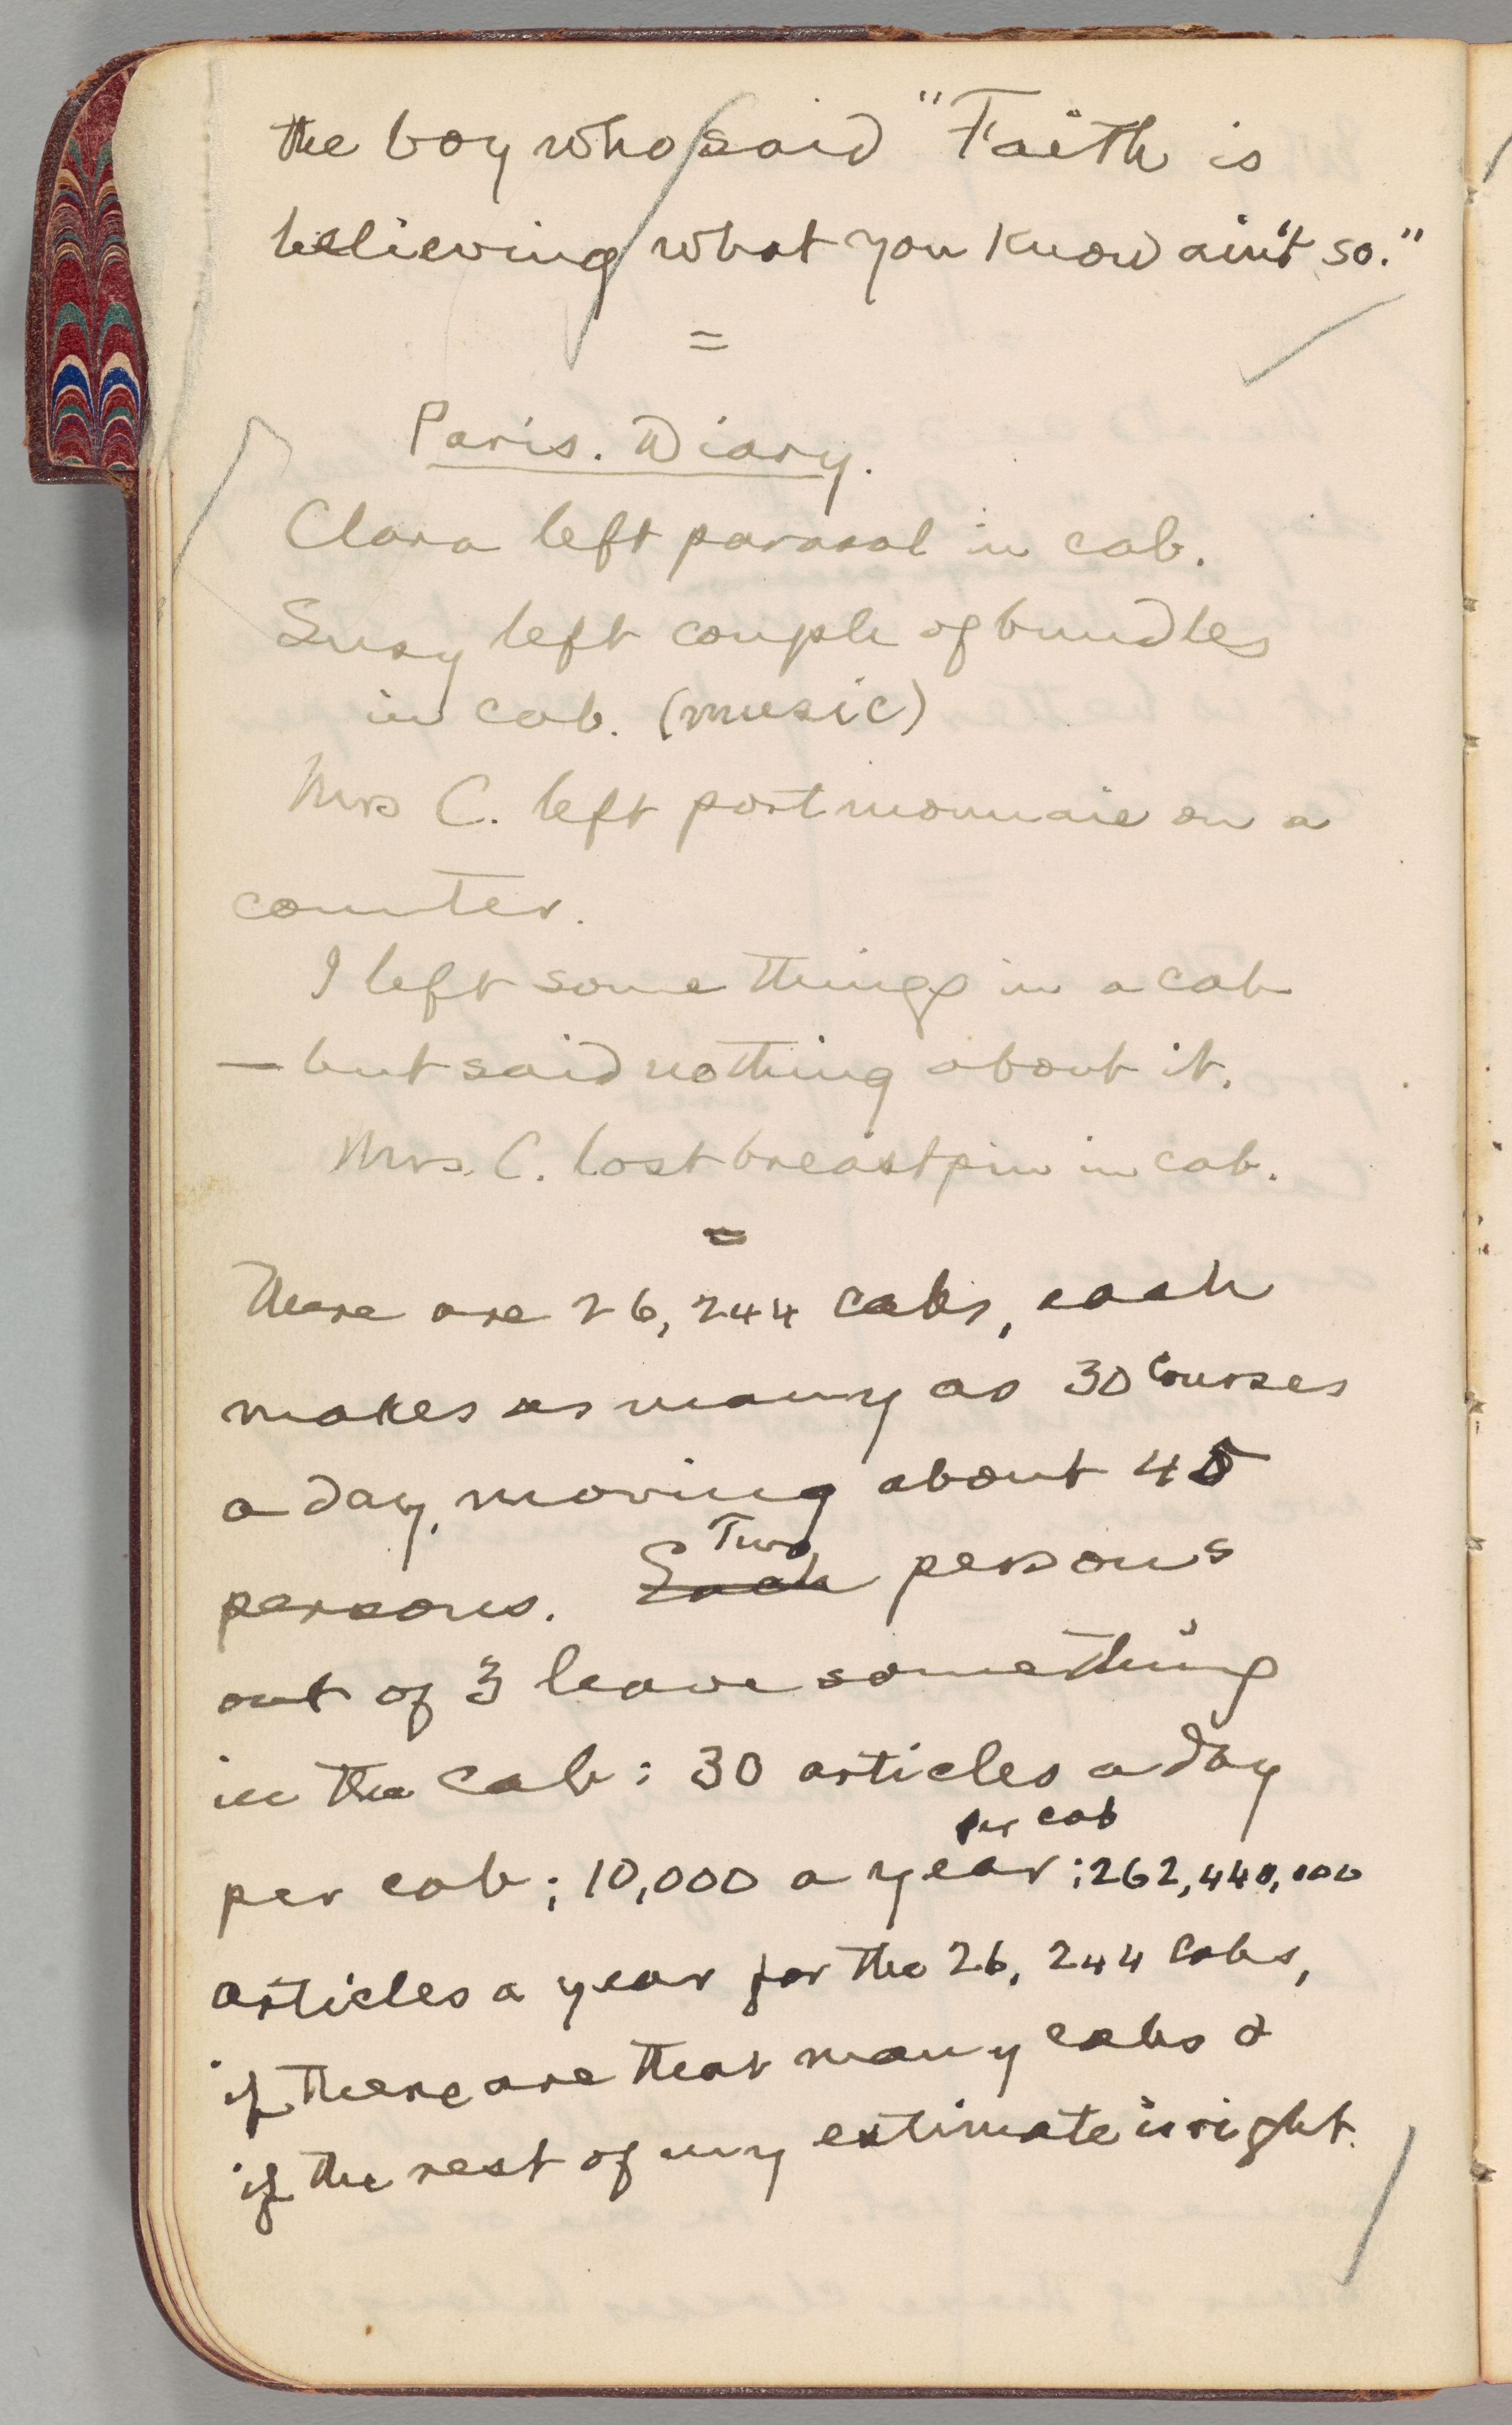 the boy who said "Faith is
believing what you know ain't so."
=
Paris. Diary.
Clara left parasol in cab.
Susy left couple of bundles
in cab. (music)
Mrs C. left portmonnaie on a
counter.
I left some things in a cab
— but said nothing about it.
Mrs. C. lost breastpin in cab.
=
There are 26,244 cabs, each
makes as many as 30 courses
a day, moving about 45
Two
persons. Each persons
out of 3 leave something
in the cab: 30 articles a day
per cab
per cab; 10,000 a year; 262,440,000
articles a year for the 26,244 cabs,
if there are that many cabs &
if the rest of my estimate is right.